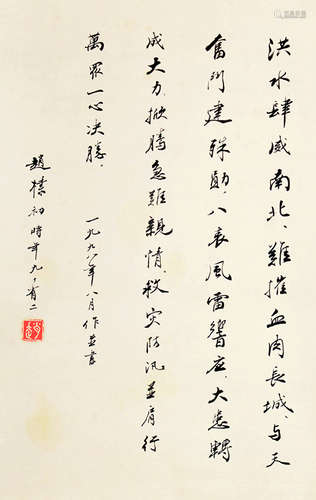 洪水肆威南北、難摧血肉長城、与天
奮鬥建殊勛、八表風雷響应、大患轉
成大力、掀騰急難親情、救灾防汛並肩行
萬眾一心決勝、
一九九八年八月作並書
趙樸初時年九十有二